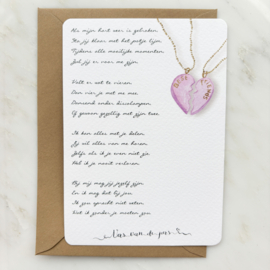 Als mijn hart weer is gebroken
Ben jij klaar met het potje lijm
Tijdens alle moeilijke momenten
Zal jij er voor me zijn
Valt er wat te vieren
Dan vier je met me mee
Dansend onder discolampen
Of gewoon gezellig met zijn twee
Ik kan alles met je delen
Jij wil alles van me horen
Zelfs als ik je even niet zie
Zal ik je nooit verloren
Bij mij mag jij jezelf zijn
En ik mag het bij jou
Ik zou opnacht niet weten
Wat ik zonder je moeten zou